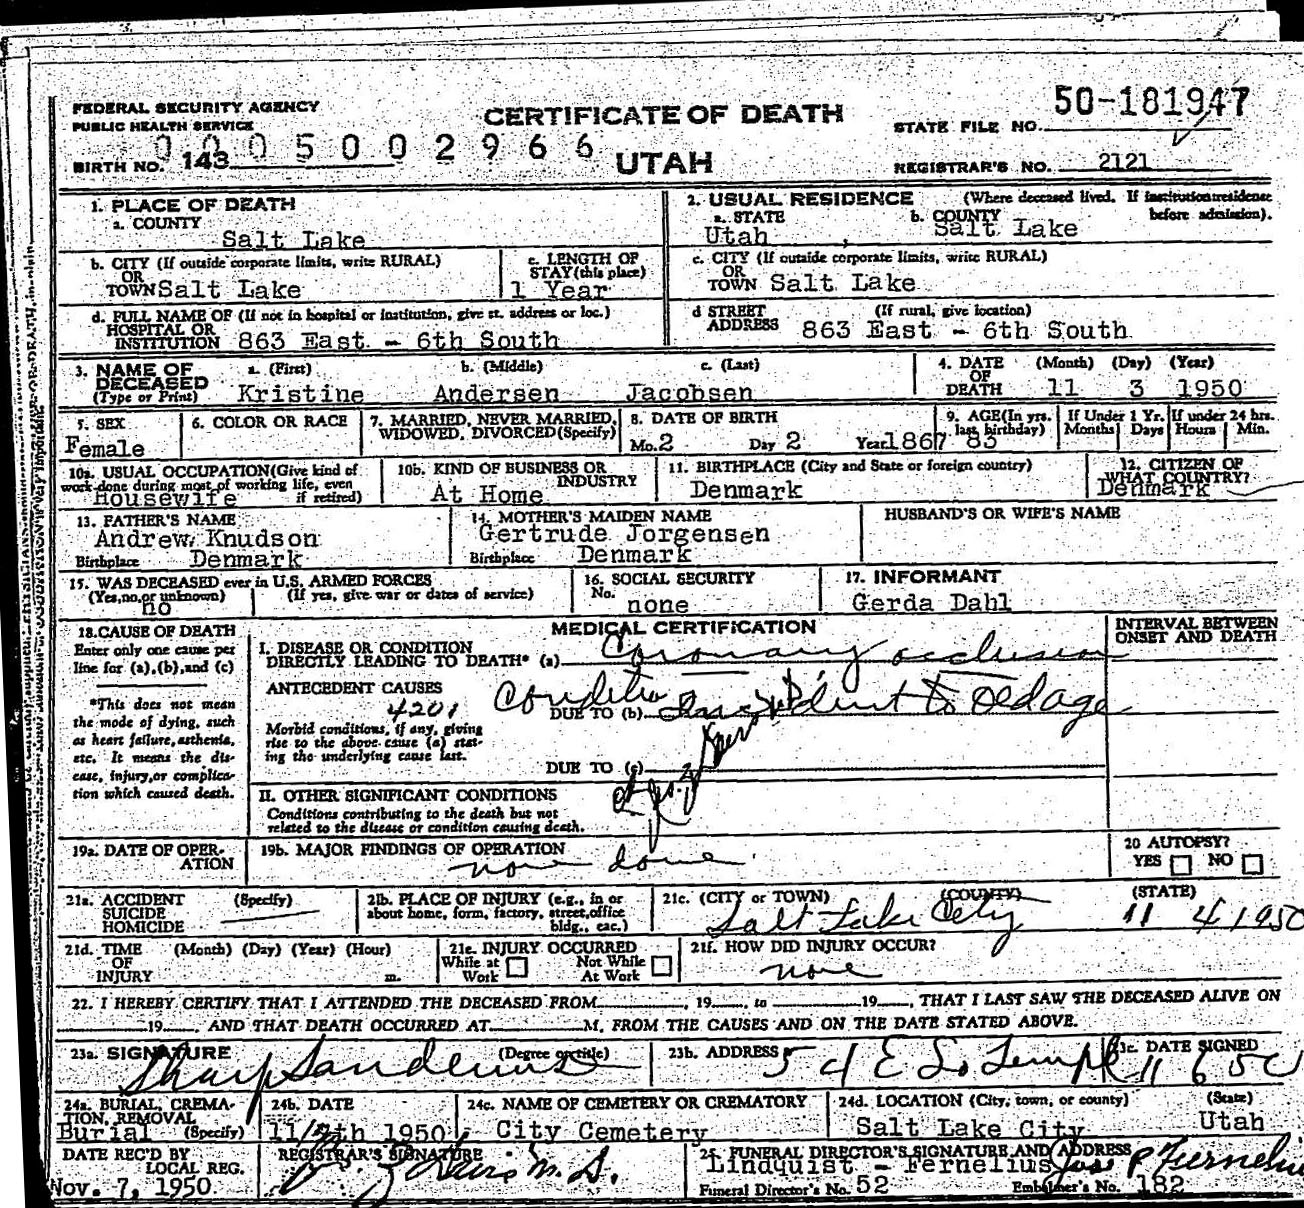 50-181947
FEDERAL SECURITY AGENCY
PUBLIC HEALTH SERVICE
CERTIFICATE OF DEATH
STATE FILE NO.
0005002966
BIRTH NO. 143
UTAH
REGISTRAR'S NO. 2121
1. PLACE OF DEATH
a. COUNTY
Salt Lake
2. USUAL RESIDENCE (Where deceased lived. If institution: residence before admission).
a. STATE
Utah
b. COUNTY
Salt Lake
b. CITY (If outside corporate limits, write RURAL)
OR
TOWN Salt Lake
c. LENGTH OF
STAY (this place)
1 Year
c. CITY (If outside corporate limits, write RURAL)
OR
TOWN Salt Lake
d. FULL NAME OF (If not in hospital or institution, give st. address or loc.)
HOSPITAL OR
INSTITUTION 863 East - 6th South
d STREET (If rural, give location)
ADDRESS 863 East - 6th South
3. NAME OF
DECEASED
(Type or Print)
a. (First) b. (Middle) c. (Last)
Kristine Andersen Jacobsen
4. DATE (Month) (Day) (Year)
OF
DEATH 11 3 1950
5. SEX
Female
6. COLOR OR RACE
7. MARRIED, NEVER MARRIED,
WIDOWED, DIVORCED (Specify)
8. DATE OF BIRTH
Mo. 2 Day 2 Year 1867
9. AGE (In yrs.
last birthday)
83
If Under 1 Yr.
Months Days
If under 24 hrs.
Hours Min.
10a. USUAL OCCUPATION (Give kind of
work done during most of working life, even
if retired)
Housewife
10b. KIND OF BUSINESS OR
INDUSTRY
At Home
11. BIRTHPLACE (City and State or foreign country)
Denmark
12. CITIZEN OF
WHAT COUNTRY?
Denmark
13. FATHER'S NAME
Andrew Knudson
Birthplace Denmark
14. MOTHER'S MAIDEN NAME
Gertrude Jorgensen
Birthplace Denmark
HUSBAND'S OR WIFE'S NAME
15. WAS DECEASED ever in U.S. ARMED FORCES
(Yes, no, or unknown) (If yes, give war or dates of service)
no
16. SOCIAL SECURITY
No.
none
17. INFORMANT
Gerda Dahl
18. CAUSE OF DEATH
Enter only one cause per
line for (a), (b), and (c)
*This does not mean
the mode of dying, such
as heart failure, asthenia,
etc. It means the dis-
ease, injury, or complica-
tion which caused death.
MEDICAL CERTIFICATION
INTERVAL BETWEEN
ONSET AND DEATH
I. DISEASE OR CONDITION
DIRECTLY LEADING TO DEATH* (a) Coronary occlusion
ANTECEDENT CAUSES
4201
DUE TO (b) to Old age
Morbid conditions, if any, giving
rise to the above cause (a) stat-
ing the underlying cause last.
DUE TO (c)
II. OTHER SIGNIFICANT CONDITIONS
Conditions contributing to the death but not
related to the disease or condition causing death.
19a. DATE OF OPER-
ATION
19b. MAJOR FINDINGS OF OPERATION
none done
20 AUTOPSY?
YES NO
21a. ACCIDENT (Specify)
SUICIDE
HOMICIDE
21b. PLACE OF INJURY (e.g., in or
about home, form, factory, street, office
bldg., eac.)
21c. (CITY or TOWN) (COUNTY) (STATE)
Salt Lake City 11 4 1950
21d. TIME (Month) (Day) (Year) (Hour)
OF
INJURY m.
21e. INJURY OCCURRED
While at Work Not While At Work
21f. HOW DID INJURY OCCUR?
none
22. I HEREBY CERTIFY THAT I ATTENDED THE DECEASED FROM , 19 , to 19 , THAT I LAST SAW THE DECEASED ALIVE ON
19 , AND THAT DEATH OCCURRED AT M, FROM THE CAUSES AND ON THE DATE STATED ABOVE.
23a. SIGNATURE (Degree or title)
Sharp Sanders
23b. ADDRESS
54 E So Temple
23c. DATE SIGNED
11 6 50
24a. BURIAL, CREMA-
TION, REMOVAL
(Specify)
Burial
24b. DATE
11/7th 1950
24c. NAME OF CEMETERY OR CREMATORY
City Cemetery
24d. LOCATION (City, town, or county) (State)
Salt Lake City Utah
DATE REC'D BY
LOCAL REG.
Nov. 7, 1950
REGISTRAR'S SIGNATURE
M. D.
25. FUNERAL DIRECTOR'S SIGNATURE AND ADDRESS
Lindquist - Fernelius Jos P Fernelius
Funeral Director's No. 52 Embalmer's No. 182